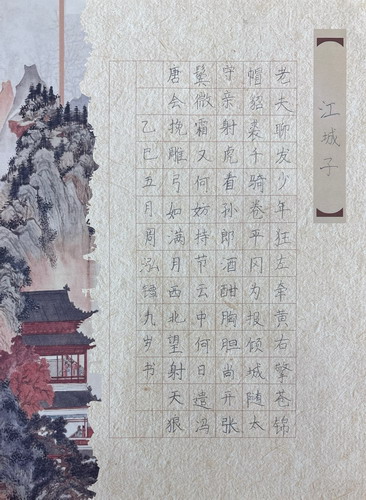 江城子
老夫聊发少年狂左牵黄右擎苍锦
帽貂裘千骑卷平冈为报倾城随太
守亲射虎看孙郎酒酣胸胆尚开张
鬓微霜又何妨持节云中何日遣冯
唐会挽雕弓如满月西北望射天狼
乙巳五月周泓九岁书